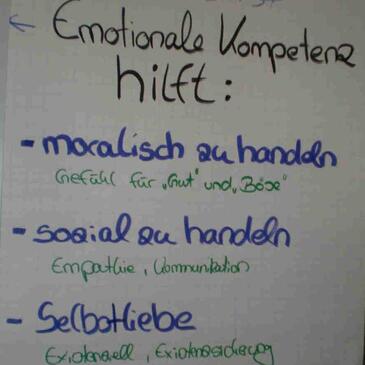 ← Emotionale Kompetenz
hilft:
- moralisch zu handeln
Gefühl für „Gut" und „Böse"
- sozial zu handeln
Empathie, Kommunikation
- Selbstliebe
Existenziell, Existenzsicherung